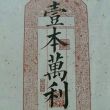 壹本萬利